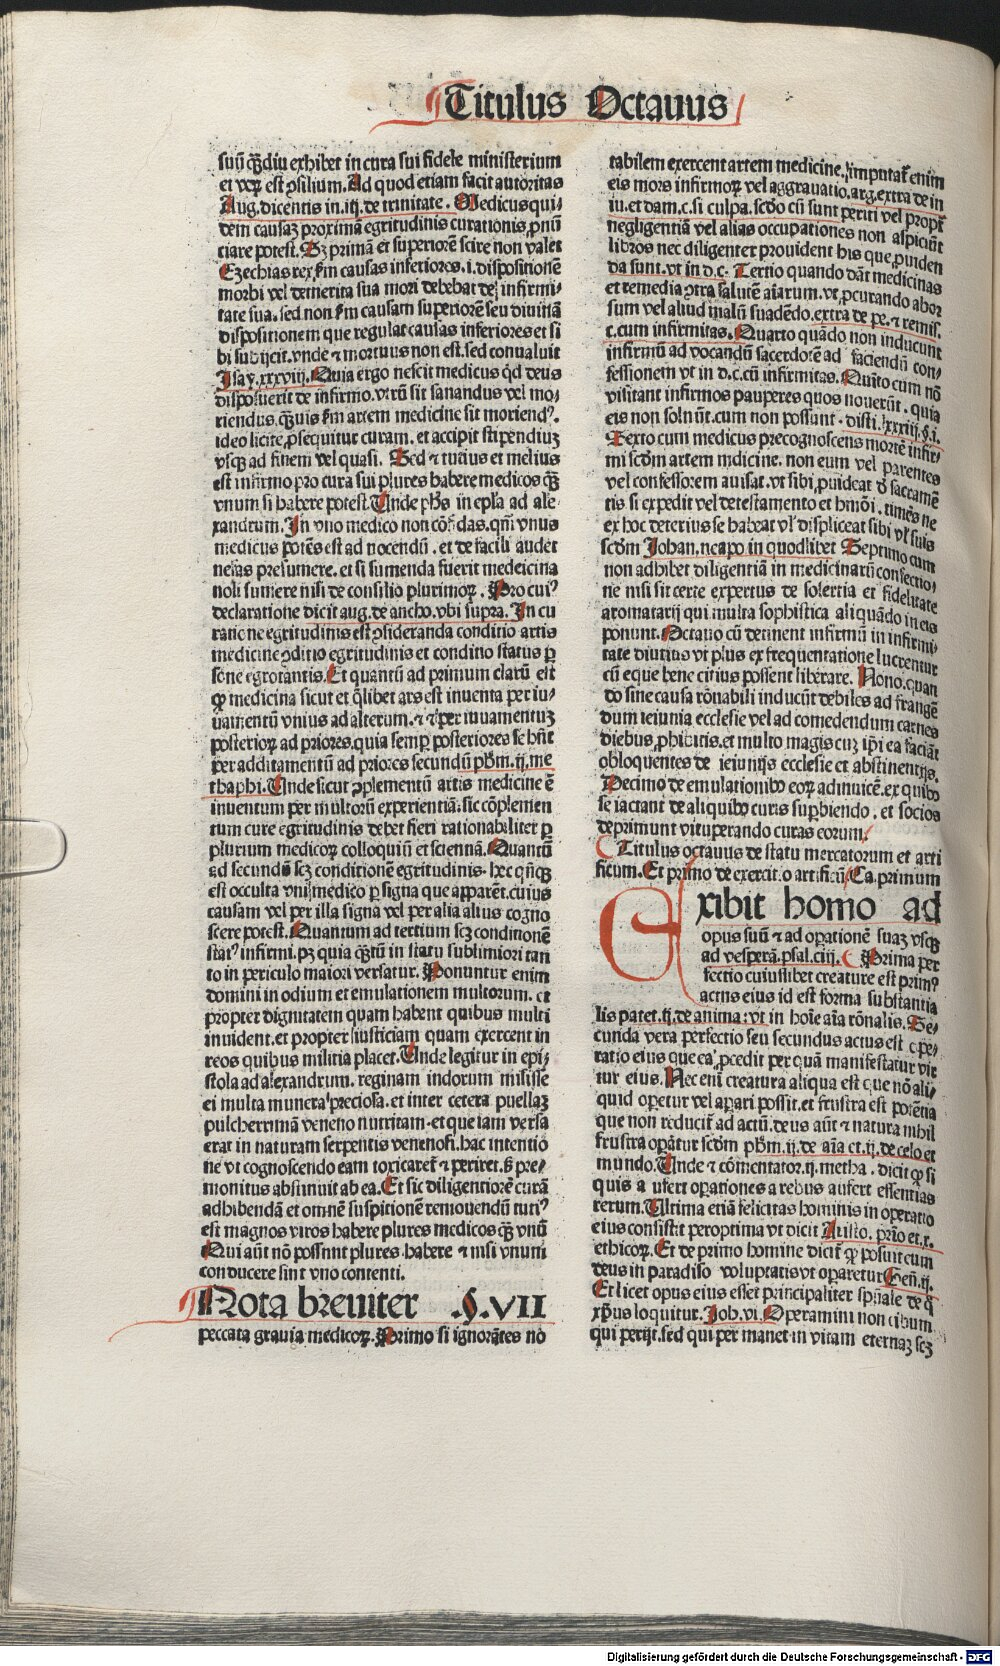 Titulus Octauus
suū q̄ȝdiu exhibet in cura sui fidele ministerium
et veꝝ est ꝯsilium. Ad quod etiam facit autoritas
Aug. dicentis in .iij. de trinitate. Medicus qui⸗
dem causaȝ proximā egritudinis curationis, pnū
ciare potest. Sȝ primā et superiorē scire non valet
Ezechias rex ẜm causas inferiores .i. dispositionē
morbi vel demerita sua mori debebat de infirmi⸗
tate sua. sed non ẜm causam superiorē seu diuinā
dispositionem que regulat causas inferiores et si
bi subijcit. vnde ⁊ mortuus non est. sed conualuit
Isay. xxxviij. Quia ergo nescit medicus qd deus
disposuerit de infirmo. vtrū sit sanandus vel mo⸗
riendus. q̄ȝuis ẜm artem medicine sit moriendꝰ.
ideo licite ꝓsequitur curam. et accipit stipendiuȝ
vsqȝ ad finem vel quasi. Sed ⁊ tutius et melius
est infirmo pro cura sui plures habere medicos q̄ȝ
vnum si habere potest. Unde phs in epla ad ale⸗
xandrum. In vno medico non cōfidas. qm vnus
medicus potēs est ad nocendū. et de facili audet
nefas presumere. et si sumenda fuerit medeicina
noli sumere nisi de consilio plurimoꝝ. Pro cuiꝰ
declaratione dicit aug. de ancho. vbi supra. In cu
ratione egritudinis est ꝯsideranda conditio artis
medicine ꝯditio egritudinis et conditio status ꝑ
sone egrotantis. Et quantū ad primum clarū est
ꝙ medicina sicut et q̄libet ars est inuenta per iu⸗
uamentū vnius ad alterum. ⁊ ⁊ per iuuamentuȝ
posterioꝝ ad priores. quia semꝑ posteriores se hn̄t
per additamentū ad priores secundū phm .ij. me
thaphi. Unde sicut ꝯplementū artis medicine ē
inuentum per multorū experientiā. sic cōplemen
tum cure egritudinis debet fieri rationabiliter ꝑ
plurium medicoꝝ colloquiū et scientiā. Quantū
ad secundū scȝ conditionē egritudinis. hec qn̄qȝ
est occulta vni medico ꝑ signa que apparēt. cuius
causam vel per illa signa vel per alia alius cogno
scere potest. Quantum ad tertium scȝ conditionē
statꝰ infirmi. pȝ quia q̄ȝtū in statu sublimiori tan
to in periculo maiori versatur. Ponuntur enim
domini in odium et emulationem multorum. et
propter dignitatem quam habent quibus multi
inuident. et propter iusticiam quam exercent in
reos quibus militia placet. Unde legitur in epi⸗
stola ad alexandrum. reginam indorum misisse
ei multa munera preciosa. et inter cetera puellaȝ
pulcherrimā veneno nutritam. et que iam versa
erat in naturam serpentis venenosi. hac intentio
ne vt cognoscendo eam toxicaret̉ ⁊ periret. sȝ pre⸗
monitus abstinuit ab ea. Et sic diligentiorē curā
adhibendā et omnē suspitionē remouendū tutiꝰ
est magnos viros habere plures medicos q̄ȝ vnū
Qui aūt nō possunt plures habere ⁊ nisi vnum
conducere sint vno contenti.
Nota breuiter .§. VII
peccata grauia medicoꝝ. Primo si ignorātes no
tabilem exercent artem medicine. imputat̉ enim
eis mors infirmoꝝ vel aggrauatio. arg. extra de in
iu. et dam. c. si culpa. scdo cū sunt periti vel propt̉
negligentiā vel alias occupationes non aspiciūt
libros nec diligenter prouident his que ꝓuiden
da sunt. vt in d. c. Tertio quando dāt medicinas
et remedia ꝯtra salutē aīarum. vt ꝓcurando abor
sum vel aliud malū suadēdo. extra de pe. ⁊ remis.
c. cum infirmitas. Quarto quādo non inducunt
infirmū ad vocandū sacerdotē ad faciendū con⸗
fessionem vt in d. c. cū infirmitas. Quīto cum nō
visitant infirmos pauperes quos nouerūt. quia
eis non soluūt. cum non possunt. disti. lxxxiij. §. i.
Sexto cum medicus precognoscens mortē infir⸗
mi scdm artem mdicine. non eum vel parentes
vel confessorem auisat. vt sibi ꝓuideat d̓ sacramē
tis si expedit vel de testamento et hmōi. timēs ne
ex hoc deterius se habeat vl̓ displiceat sibi vl̓ suis
scdm Johan. neapo in quodlibet Septimo cum
non adhibet diligentiā in medicinarū confectio⸗
ne nisi sit certe expertus de solertia et fidelitate
aromatarij qui multa sophistica aliquādo in eis
ponunt. Octauo cū detinent infirmū in infirmi⸗
tate diutius vt plus ex frequentatione lucrentur
cū eque bene citius possent liberare. Nono. quan
do sine causa rōnabili inducūt debiles ad frangē
dum ieiunia ecclesie vel ad comedendum carnes
diebus ꝓhibitis. et multo magis cuȝ ipi ea faciāt
obloquentes de ieiunijs ecclesie et abstinentijs.
Decimo de emulationibꝰ eoꝝ adinuicē. ex quibꝰ
se iactant de aliquibꝰ curis suꝑbiendo. et socios
deprimunt vituperando curas eorum.
Titulus octauus de statu mercatorum et arti
ficum. Et primo de exercitio artificū Ca. primum
Exibit homo ad
opus suū ⁊ ad oꝑationē suaȝ vsqȝ
ad vesperā. psal. ciij. Prima per
fectio cuiuslibet creature est primꝰ
actus eius id est forma substantia
lis patet .ij. de anima: vt in hoīe aīa rōnalis. Se⸗
cunda vera perfectio seu secundus actus est ope⸗
ratio eius que ea ꝓcedit per quā manifestatur vir
tur eius. Nec enī creatura aliqua est que nō ali⸗
quid operetur vel apari possit. et frustra est potētia
que non reducit̉ ad actū. deus aūt ⁊ natura nihil
frustra oꝑātur scdm phm .ij. de aīa et .ij. de celo et
mundo. Unde ⁊ cōmentator .ij. metha. dicit ꝙ si
quis a ufert oꝑationes a rebus aufert essentias
rerum. Ultima etiā felicitas hominis in operatio
eius consistit per optima vt dicit Aristo. prīo et .x.
ethicoꝝ. Et de primo homine dicit̉ ꝙ posuit eum
deus in paradiso voluptatis vt oꝑaretur Geñ. ij.
Et licet opus eius esset principaliter spūale de q̊
xpūs loquitur. Joh. vi. Operamini non cibum
qui perijt. sed qui per manet in vitam eternaȝ scȝ
Digitalisierung gefördert durch die Deutsche Forschungsgemeinschaft - DFG